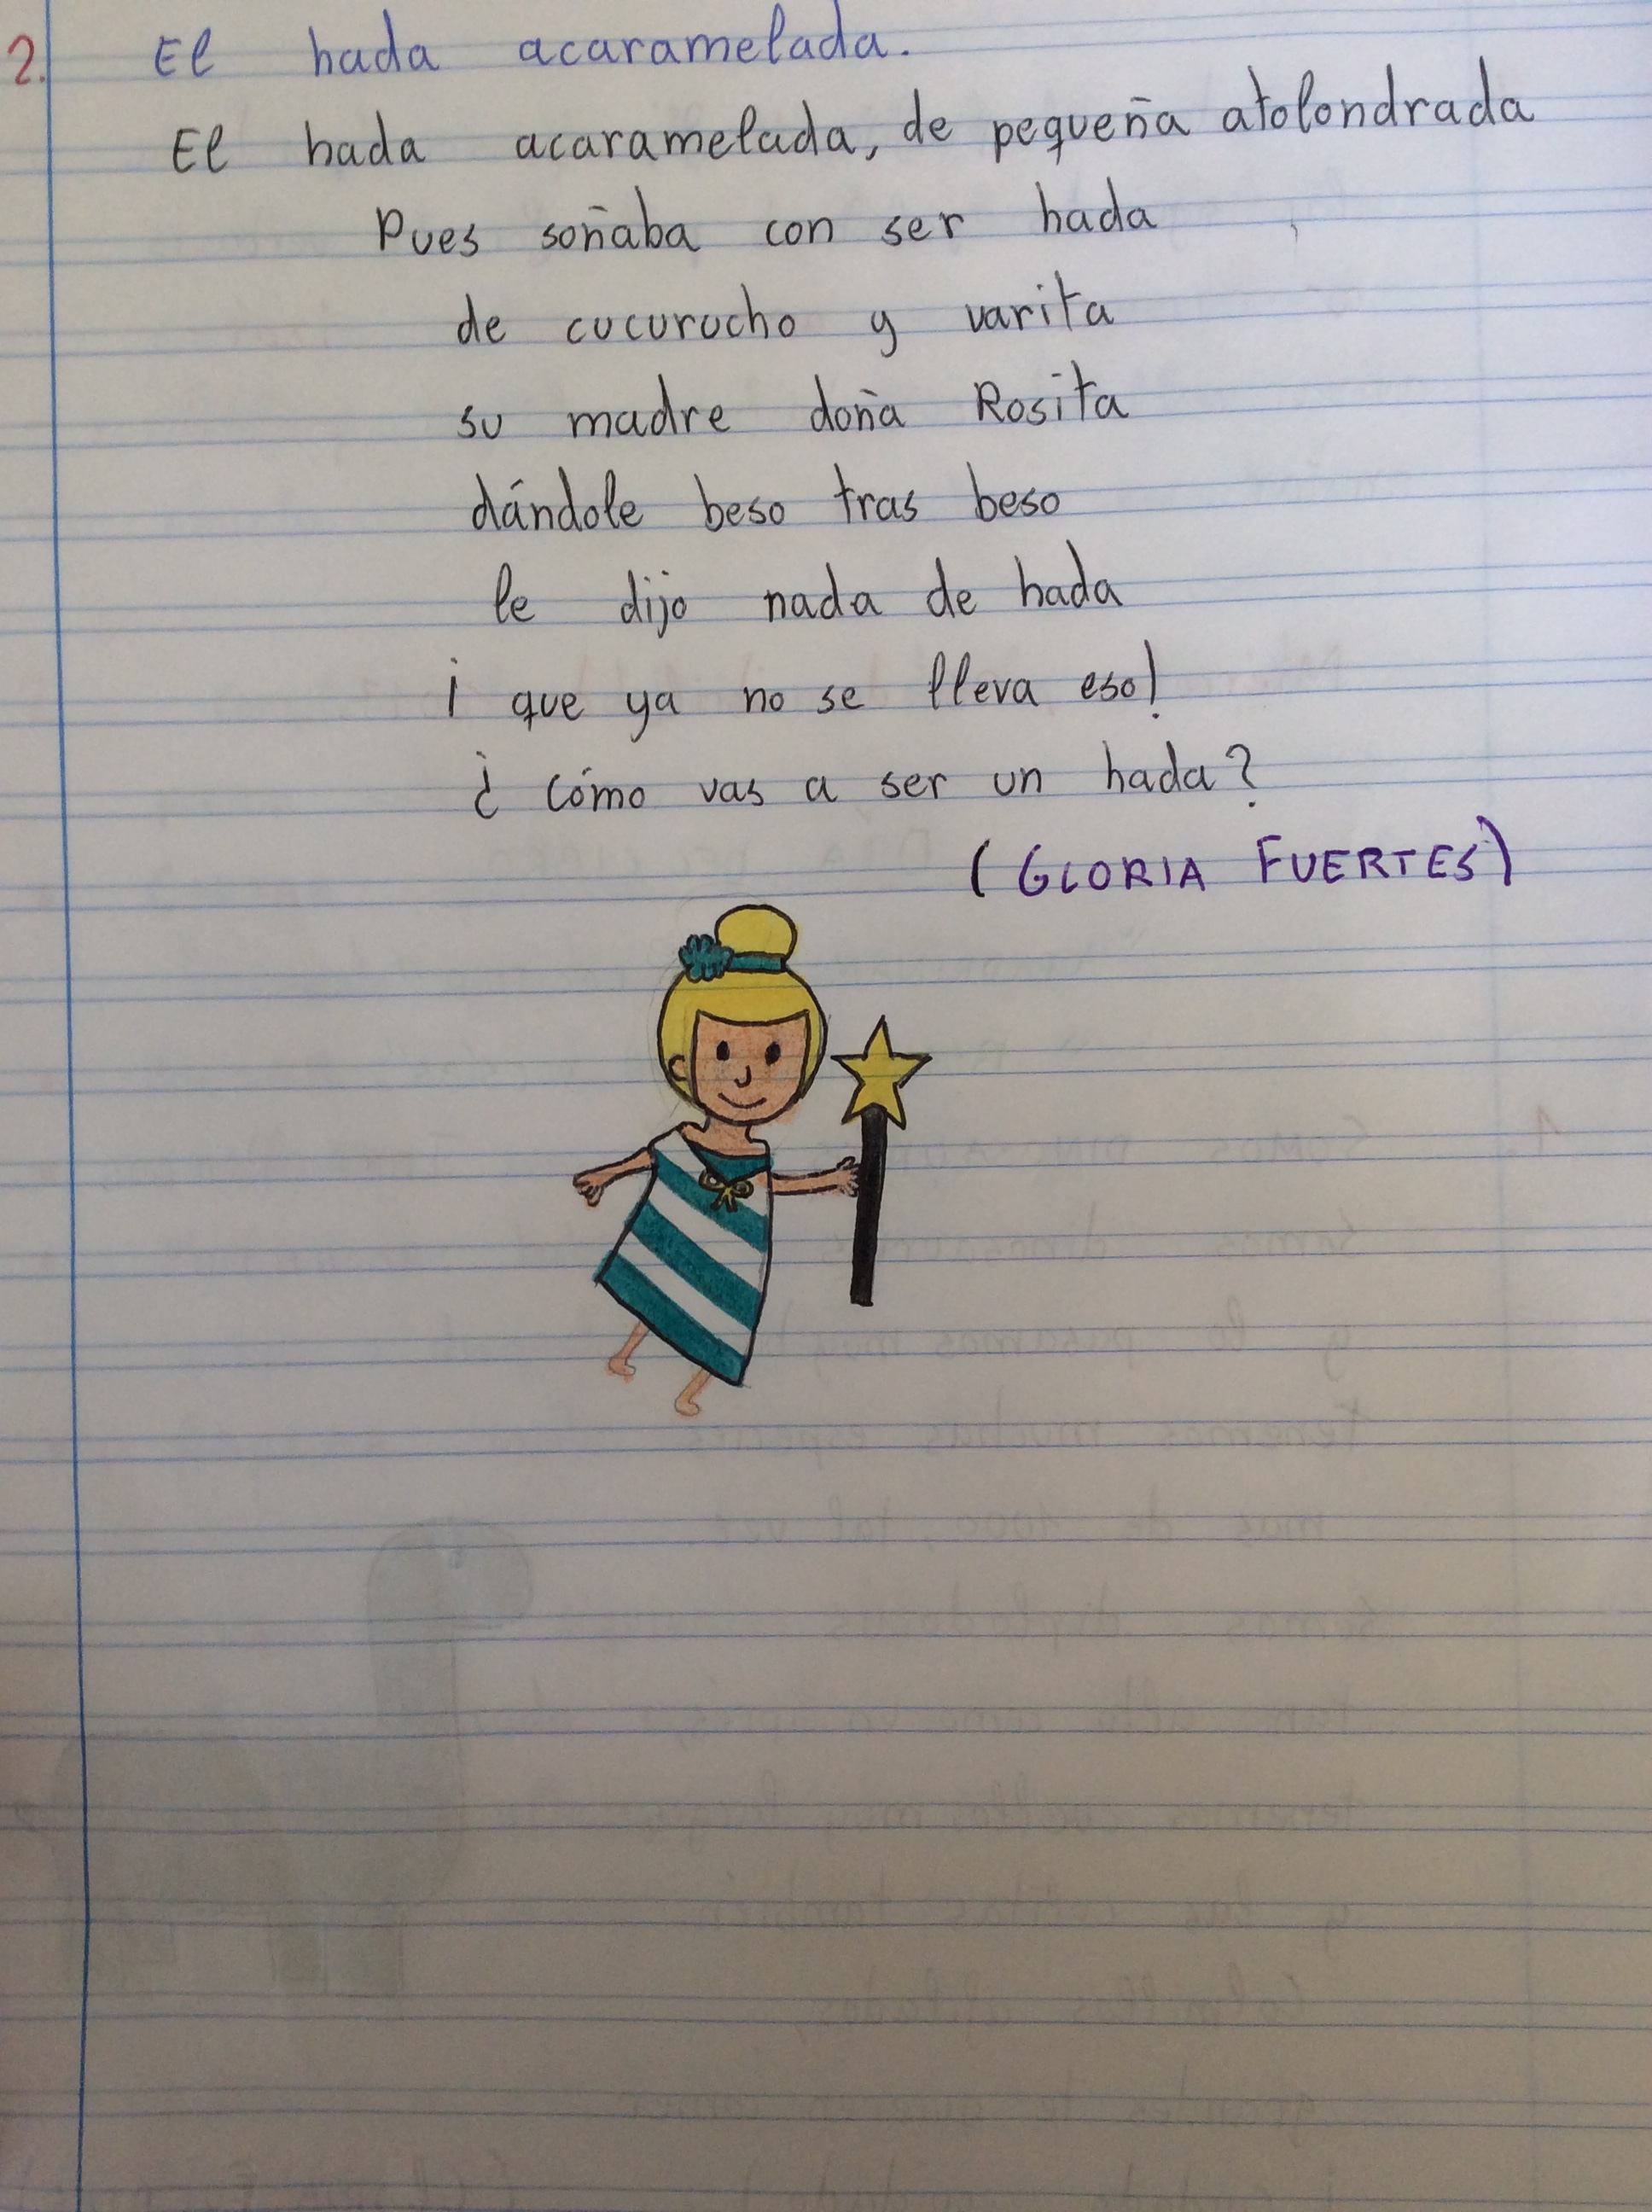 2. El hada acaramelada.
El hada acaramelada, de pequeña atolondrada
Pues soñaba con ser hada
de cucurucho y varita
su madre doña Rosita
dándole beso tras beso
le dijo nada de hada
¡ que ya no se lleva eso!
¿ Cómo vas a ser un hada?
(GLORIA FUERTES)